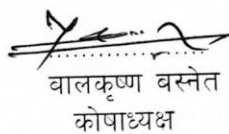 वालकृष्ण वस्नेत
कोषाध्यक्ष